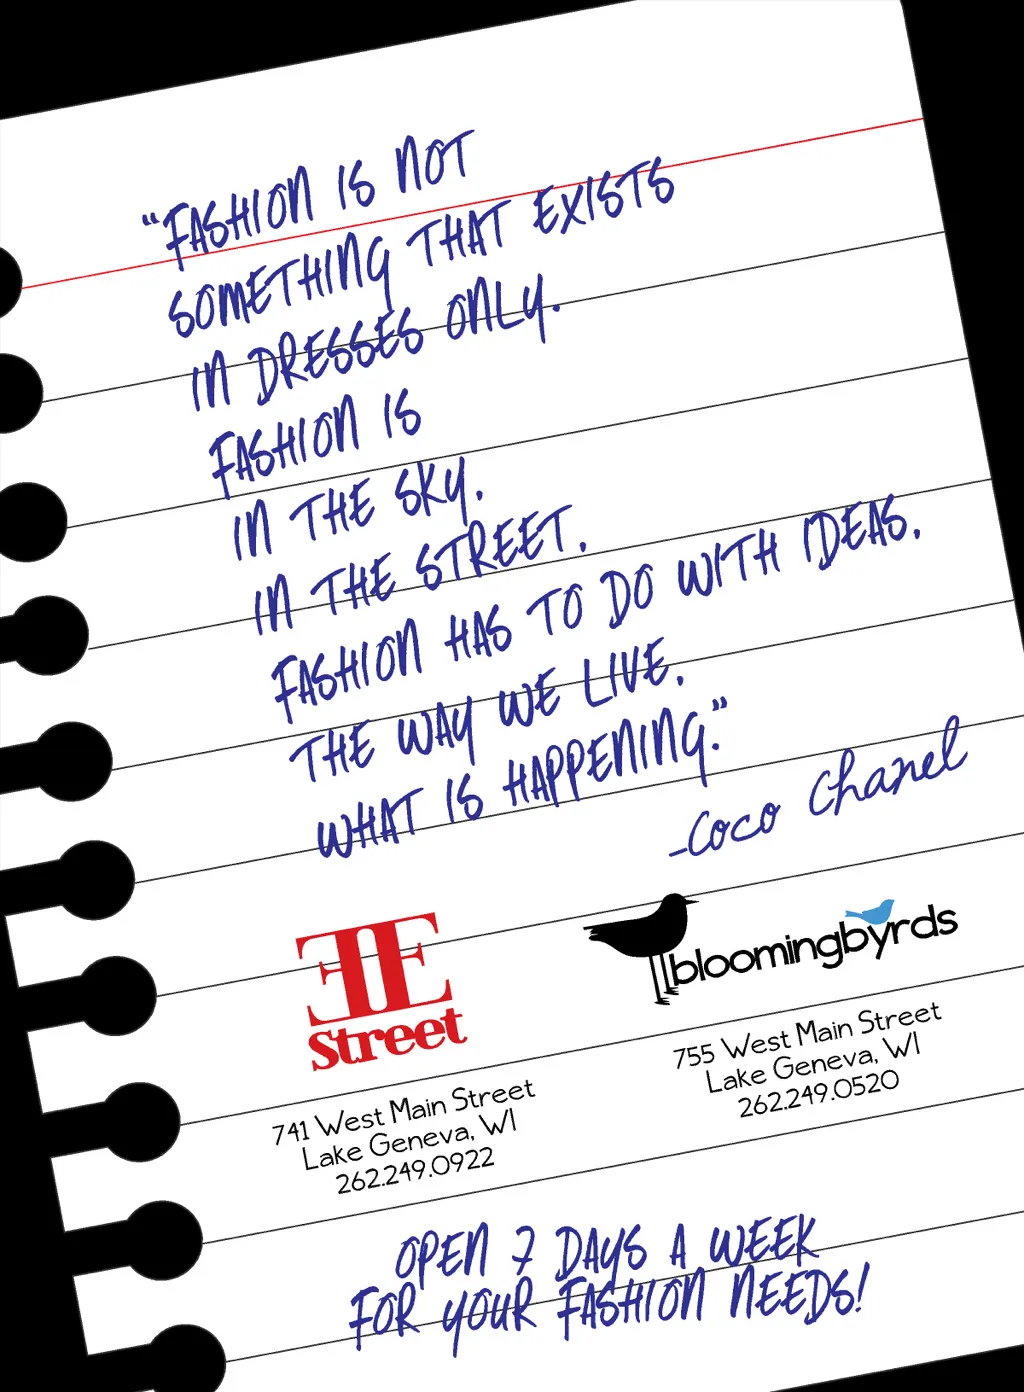 “FASHION IS NOT
SOMETHING THAT EXISTS
IN DRESSES ONLY.
FASHION IS
IN THE SKY.
IN THE STREET.
FASHION HAS TO DO WITH IDEAS.
THE WAY WE LIVE.
WHAT IS HAPPENING.”
-Coco Chanel
EE
street
741 West Main Street
Lake Geneva, WI
262.249.0922
bloomingbyrds
755 West Main Street
Lake Geneva, WI
262.249.0520
OPEN 7 DAYS A WEEK
FOR YOUR FASHION NEEDS!